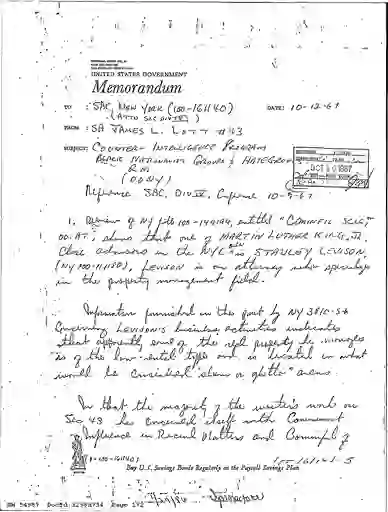 UNITED STATES GOVERNMENT
Memorandum
TO : SAC, NEW YORK (100-161140) DATE: 10-12-67
FROM : SA JAMES L. LOTT #43
SUBJECT: COUNTER-INTELLIGENCE PROGRAM
BLACK NATIONALIST GROUPS & HATE GROUPS
RM
(OO:NY)
Reference SAC, Div IV, Conference 10-9-67
1. Review of NY file 100-149194, entitled "COMINFIL SCLC,"
OO:AT, shows that one of MARTIN LUTHER KING, JR.
close advisors in the NYC area is STANLEY LEVISON,
(NY 100-111180). LEVISON is an attorney who specializes
in the property management field.
Information furnished in the past by NY 3810-S*
concerning LEVISON'S business activities indicates
that apparently some of the real property he manages
is of the low-rental type and is located in what
would be considered "slum or ghetto" areas.
In that the majority of the writer's work on
Sec 43 he concerned itself with Communist
Influence in Racial Matters and Cominfil of
1-100-161140
Buy U.S. Savings Bonds Regularly on the Payroll Savings Plan
NW 54989 DocId:32988734 Page 172